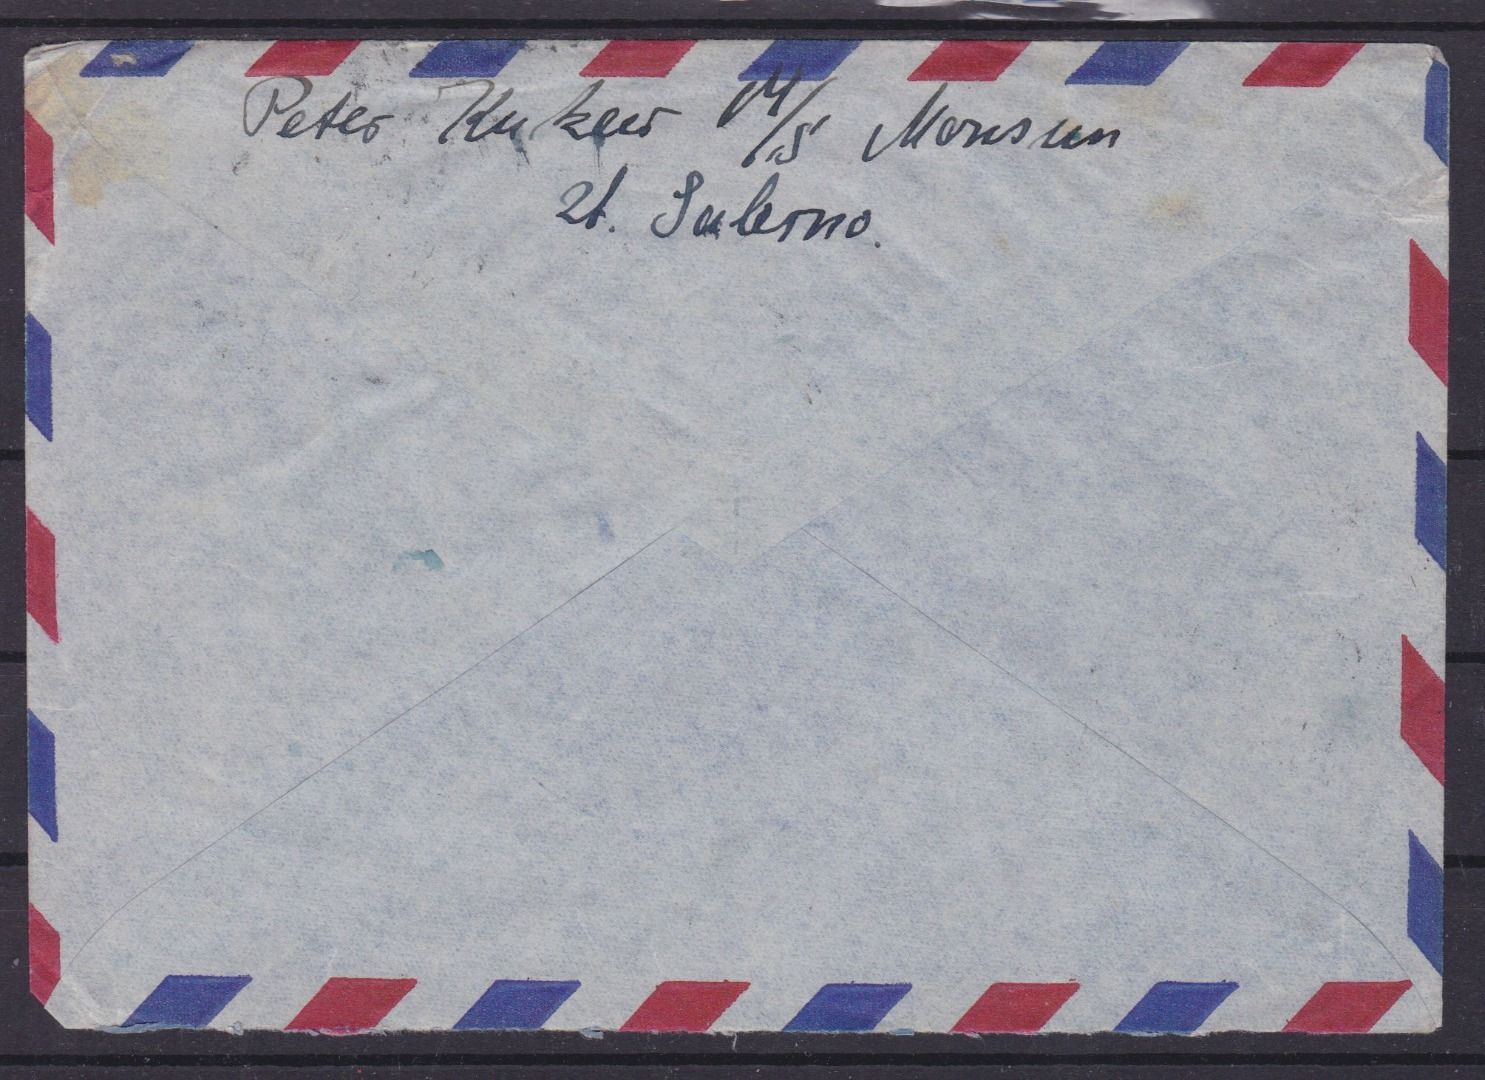 Peter M/S Monsun
zt. Salerno.